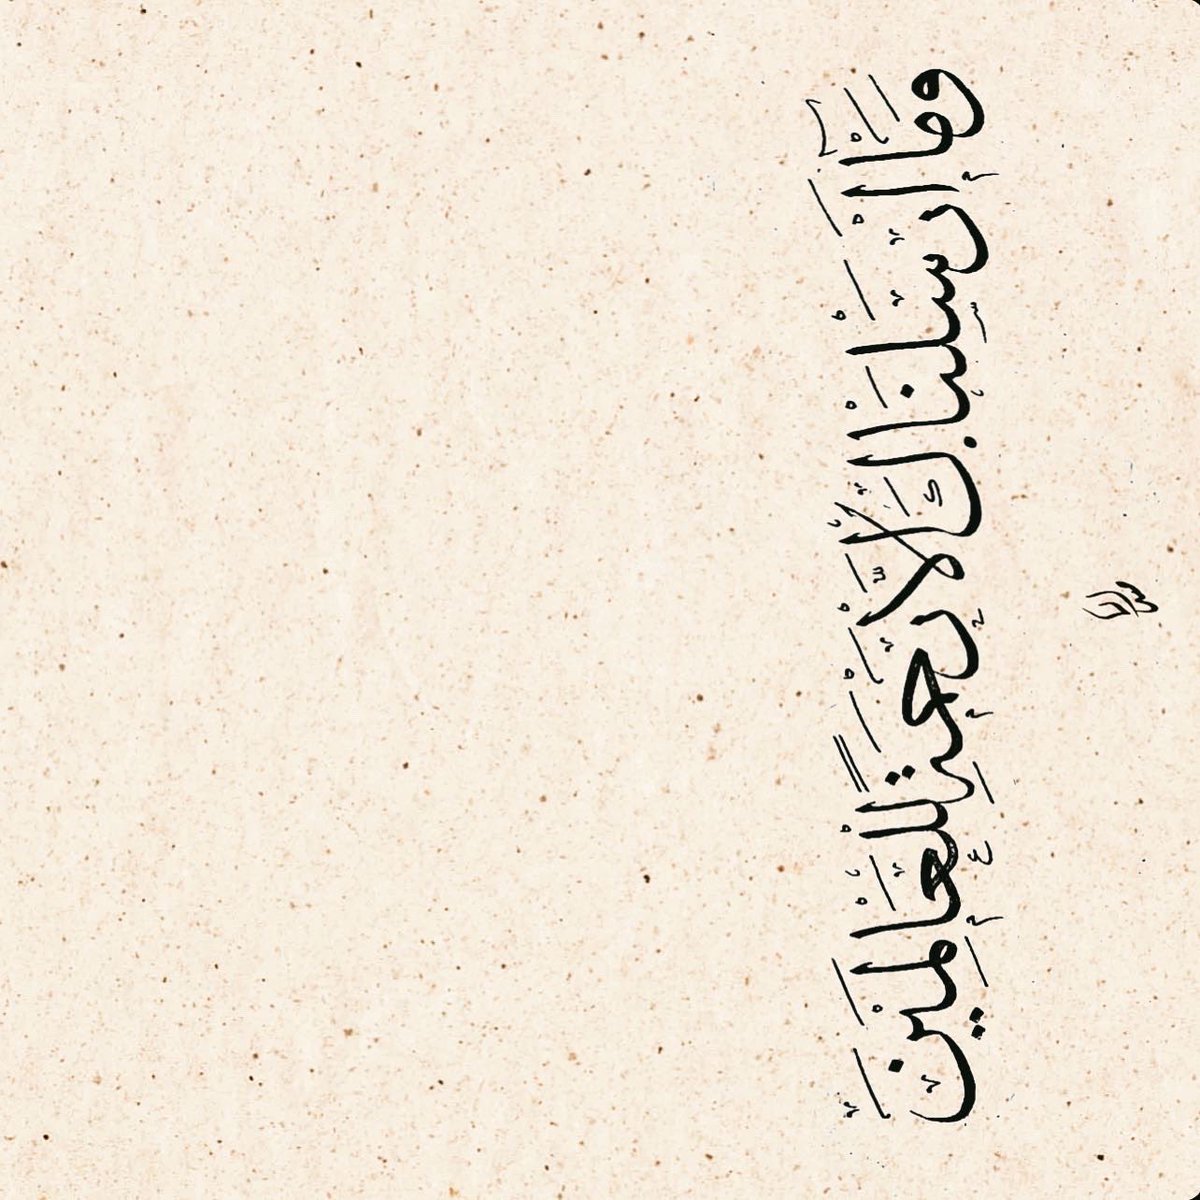 وَمَآ أَرْسَلْنَاكَ إِلَّا رَحْمَةً لِلْعَالَمِينَ